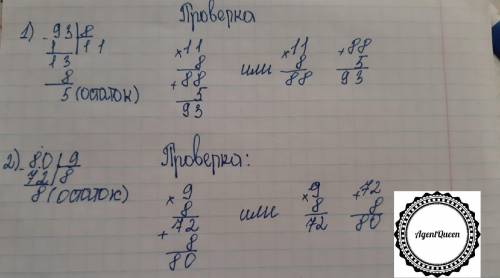 Проверка
1) - 93 | 8
1 | 11
13
8
5 (остаток)
× 11
8
+ 88
5
93
или
× 11
8
88
+ 88
5
93
2) - 80 | 9
72 | 8
8 (остаток)
Проверка:
× 9
8
+ 72
8
80
или
× 9
8
72
+ 72
8
80
AgentQueen